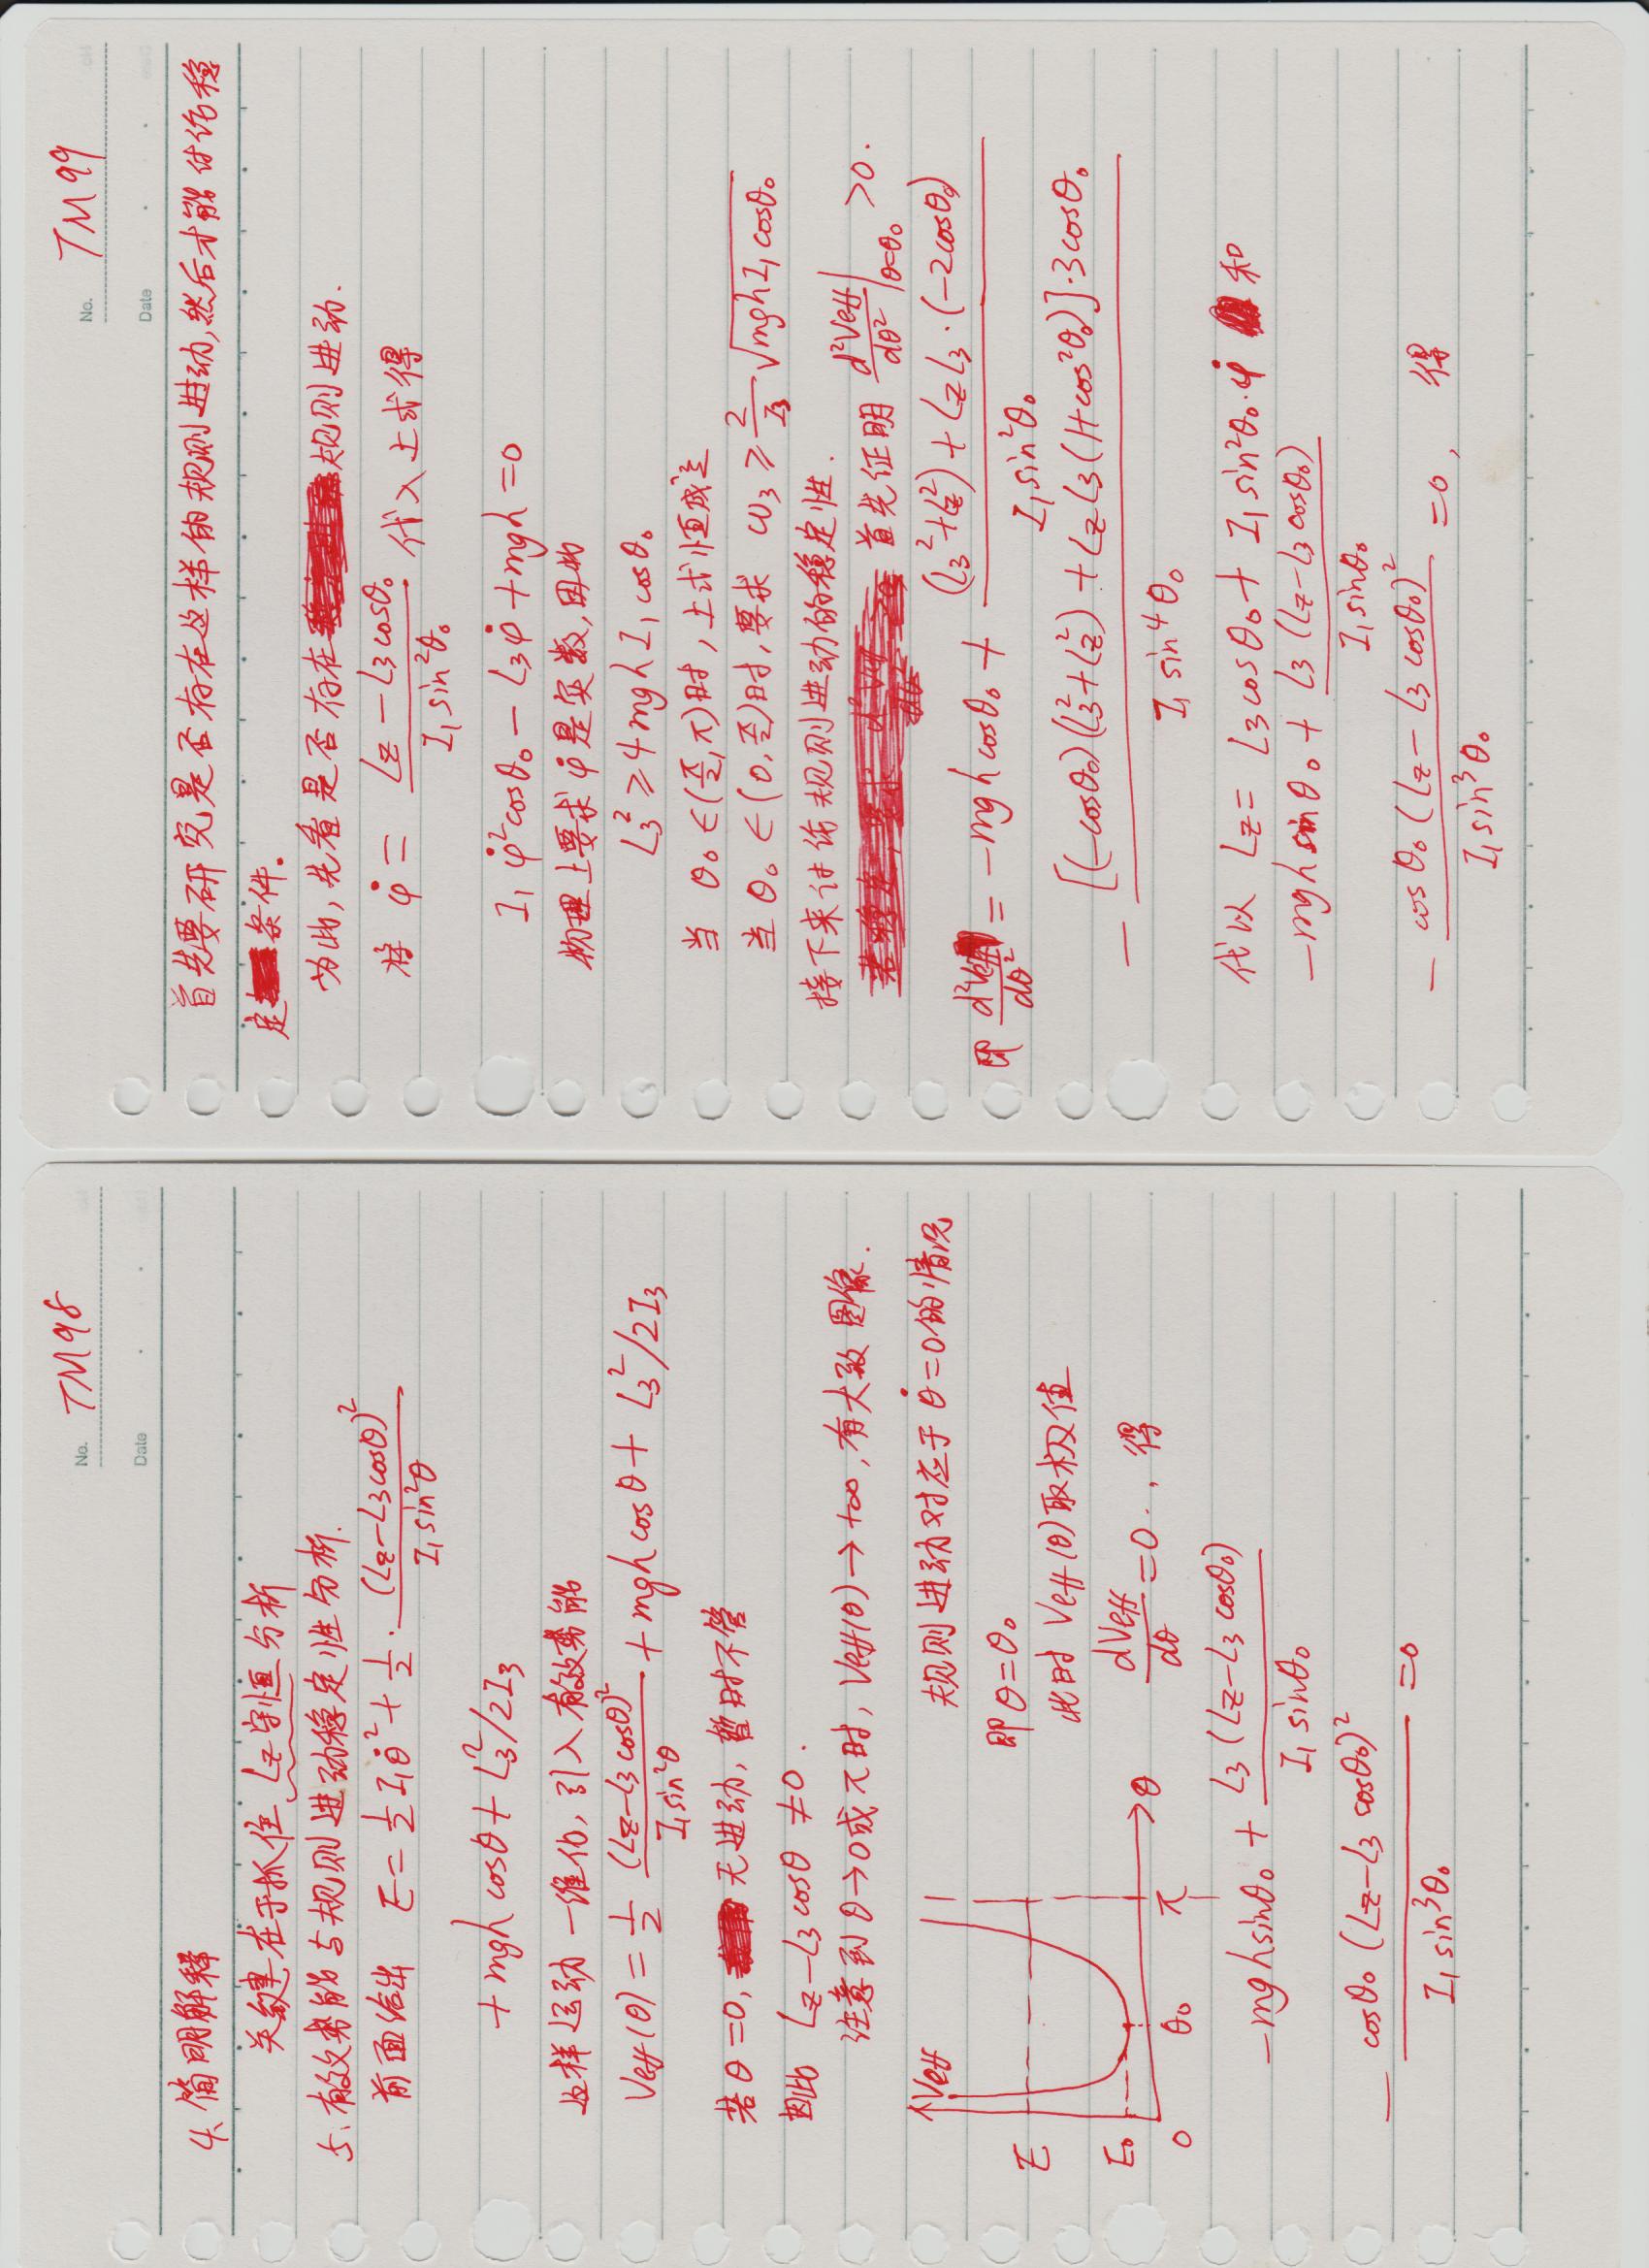 No. TM98
Date
4、简明解释
关键在于抓住 Lz守恒分析
5、有效势能与规则进动稳定性分析.
前面给出 E = 1/2 I₁θ̇² + 1/2 · (Lz-L3cosθ)²/(I₁sin²θ)
+ mgh cosθ + L3²/2I3
这样运动一维化, 引入有效势能
Veff(θ) = 1/2 (Lz-L3cosθ)²/(I₁sin²θ) + mgh cosθ + L3²/2I3
若θ=0, 无进动, 暂时不管
因此 Lz-L3cosθ ≠0.
注意到 θ→0或π时, Veff(θ)→+∞, 有大致图像.
Veff
E
E₀
0 θ₀ π θ
规则进动对应于 θ̇=0的情况
即θ=θ₀
此时 Veff(θ)取极值
dVeff/dθ =0 , 得
-mgh sinθ₀ + L3(Lz-L3cosθ₀)/(I₁sinθ₀)
- cosθ₀(Lz-L3cosθ₀)²/(I₁sin³θ₀) =0
No. TM99
Date
首先要研究是否存在这样的规则进动,然后才能讨论稳
定条件.
为此, 先看是否存在规则进动.
将 φ̇ = (Lz-L3cosθ₀)/(I₁sin²θ₀) 代入上式得
I₁φ̇²cosθ₀ - L3φ̇ + mgh = 0
物理上要求φ̇是实数,因此
L3² ≥ 4mghI₁cosθ₀
当 θ₀∈(π/2,π)时, 上式恒成立
当 θ₀∈(0,π/2)时, 要求 ω3 ≥ 2/I3 √(mghI₁cosθ₀)
接下来讨论规则进动的稳定性.
首先证明 d²Veff/dθ²|θ=θ₀ >0.
即 d²Veff/dθ² = -mgh cosθ₀ + ((L3²+Lz²)+LzL3·(-2cosθ₀))/(I₁sin²θ₀)
- [(-cosθ₀)(L3²+Lz²)+LzL3(1+cos²θ₀)]·3cosθ₀/(I₁sin⁴θ₀)
代以 Lz = L3cosθ₀ + I₁sin²θ₀·φ̇ 和
-mgh sinθ₀ + L3(Lz-L3cosθ₀)/(I₁sinθ₀)
- cosθ₀(Lz-L3cosθ₀)²/(I₁sin³θ₀) =0, 得